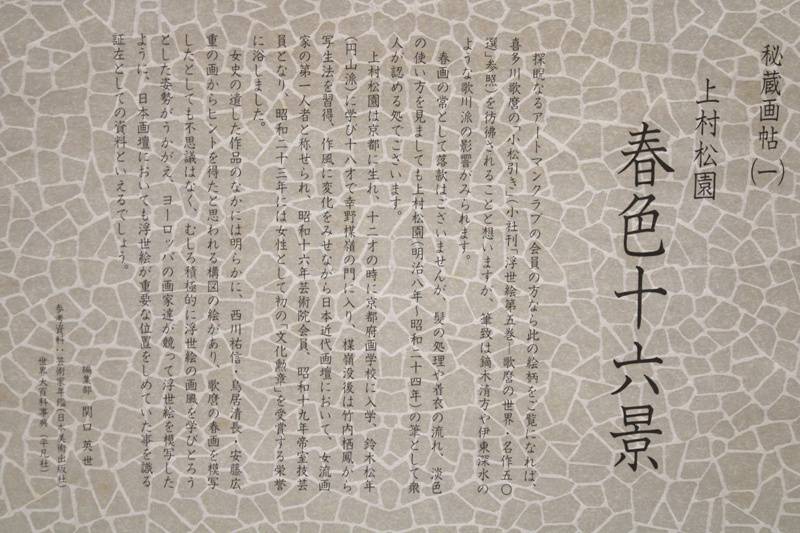 秘蔵画帖(一)
上村松園
春色十六景
探睨なるアートマンクラブの会員の方なら此の絵柄をご覧になれば、
喜多川歌麿の「小松引き」(小社刊「浮世絵第五巻—歌麿の世界・名作五〇
選」参照)を彷彿されることと想いますが、筆致は鏑木清方や伊東深水の
ような歌川派の影響がみられます。
春画の常として落款はございませんが、髪の処理や着衣の流れ、淡色
の使い方を見ましても上村松園(明治八年〜昭和二十四年)の筆として衆
人が認める処でございます。
上村松園は京都に生れ、十二才の時に京都府画学校に入学、鈴木松年
(円山派)に学び十八才で幸野楳嶺の門に入り、楳嶺没後は竹内栖鳳から
写生法を習得、作風に変化をみせながら日本近代画壇において、女流画
家の第一人者と称せられ、昭和十六年芸術院会員、昭和十九年帝室技芸
員となり、昭和二十三年には女性として初の「文化勲章」を受賞する栄誉
に浴しました。
女史の遺した作品のなかには明らかに、西川祐信・鳥居清長・安藤広
重の画からヒントを得たと思われる構図の絵があり、歌麿の春画を模写
したとしても不思議はなく、むしろ積極的に浮世絵の画風を学びとろう
とした姿勢がうかがえ、ヨーロッパの画家達が競って浮世絵を模写した
ように、日本画壇においても浮世絵が重要な位置をしめていた事を識る
証左としての資料といえるでしょう。
編集部 関口英世
参考資料:芸術家年鑑(日本美術出版社)
世界大百科事典(平凡社)